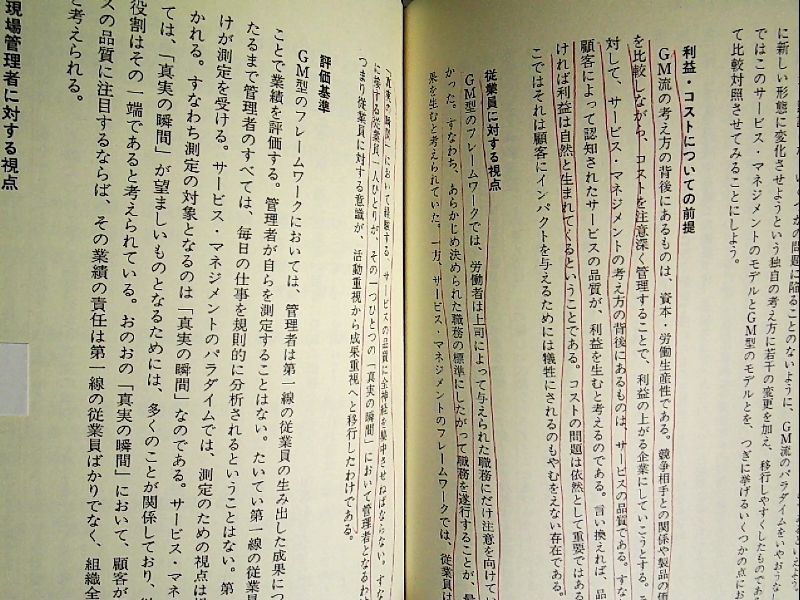 の問題に陥ることのないように、GM流のパラダイムをいやおうな
に新しい形態に変化させようという独自の考え方に若干の変更を加え、移行しやすくしたものであ
ではこのサービス・マネジメントのモデルとGM型のモデルとを、つぎに挙げるいくつかの点にお
て比較対照させてみることにしよう。
利益・コストについての前提
GM流の考え方の背後にあるものは、資本・労働生産性である。競争相手との関係や製品の価
を比較しながら、コストを注意深く管理することで、利益の上がる企業にしていこうとする。
対して、サービス・マネジメントの考え方の背後にあるものは、サービスの品質である。すな
顧客によって認知されたサービスの品質が、利益を生むと考えるのである。言い換えれば、品
ければ利益は自然と生まれてくるということである。コストの問題は依然として重要ではある
こではそれは顧客にインパクトを与えるためには犠牲にされるのもやむをえない存在である。
従業員に対する視点
GM型のフレームワークでは、労働者は上司によって与えられた職務にだけ注意を向けてい
かった。すなわち、あらかじめ決められた職務の標準にしたがって職務を遂行することが、最
果を生むと考えられていた。一方、サービス・マネジメントのフレームワークでは、従業員は
「真実の瞬間」において経験する、サービスの品質に全神経を集中させねばならない。すな
に接する従業員一人ひとりが、その一つひとつの「真実の瞬間」において管理者となるわ
つまり従業員に対する意識が、活動重視から成果重視へと移行したわけである。
評価基準
GM型のフレームワークにおいては、管理者は第一線の従業員の生み出した成果につ
ことで業績を評価する。管理者が自らを測定することはない。たいてい第一線の従業
たるまで管理者のすべては、毎日の仕事を規則的に分析されるということはない。第
けが測定を受ける。サービス・マネジメントのパラダイムでは、測定のための視点は
かれる。すなわち測定の対象となるのは「真実の瞬間」なのである。サービス・マネ
ては、「真実の瞬間」が望ましいものとなるためには、多くのことが関係しており、
役割はその一端であると考えられている。おのおの「真実の瞬間」において、顧客が
スの品質に注目するならば、その業績の責任は第一線の従業員ばかりでなく、組織全
と考えられる。
現場管理者に対する視点